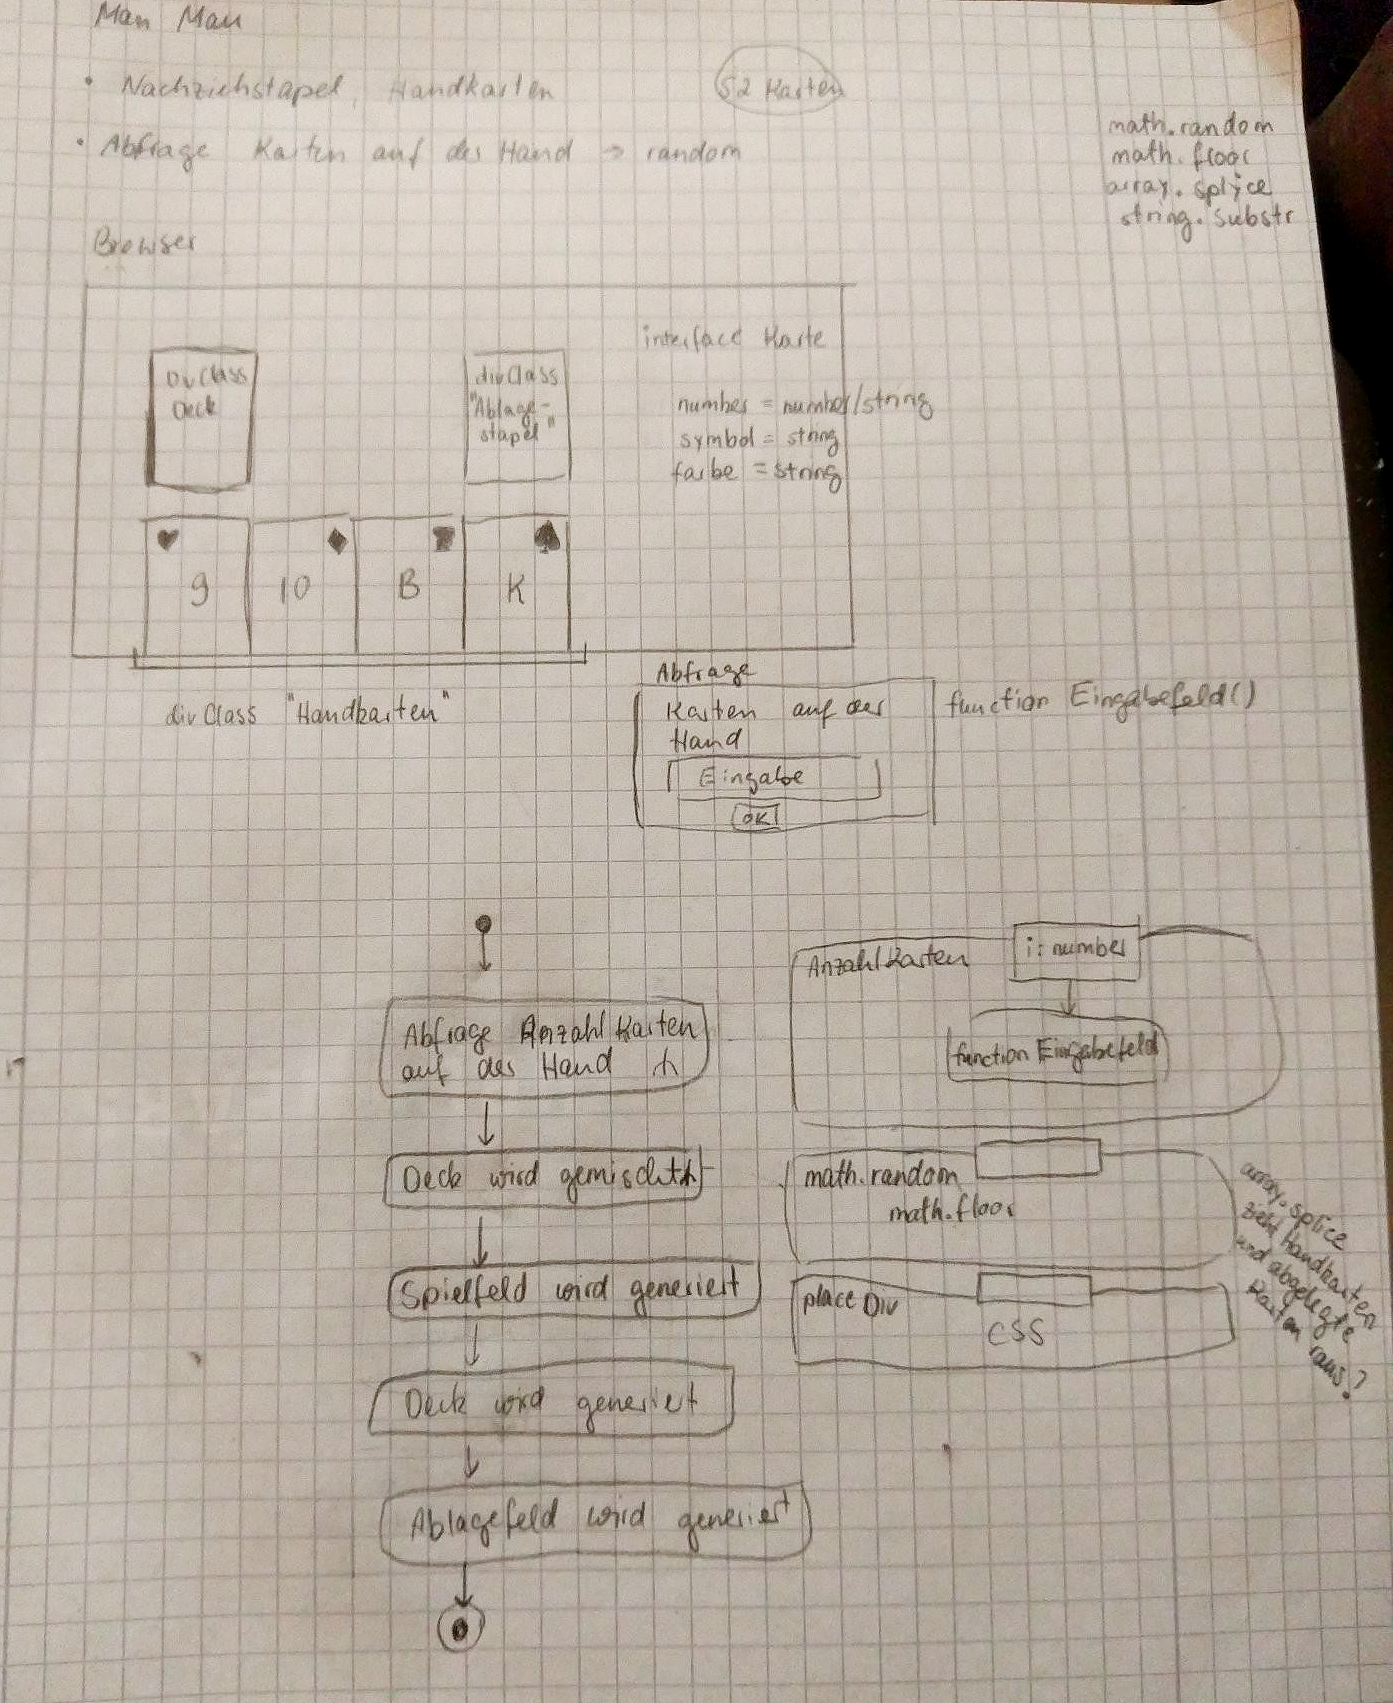 Mau Mau
• Nachziehstapel, Handkarten
52 Karten
• Abfrage Karten auf der Hand → random
math.random
math.floor
array.splice
string.substr
Browser
DivClass
Deck
divClass
"Ablage-
stapel"
interface Karte
number = number/string
symbol = string
farbe = string
9
10
B
K
divClass "Handkarten"
Abfrage
Karten auf der
Hand
Eingabe
OK
function Eingabefeld()
Abfrage Anzahl Karten
auf der Hand
Deck wird gemischt
Spielfeld wird generiert
Deck wird generiert
Ablagefeld wird generiert
Anzahl Karten
i: number
function Eingabefeld
math.random
math.floor
place Div
CSS
array.splice
zieht Handkarten
und abgelegte
Karten raus?